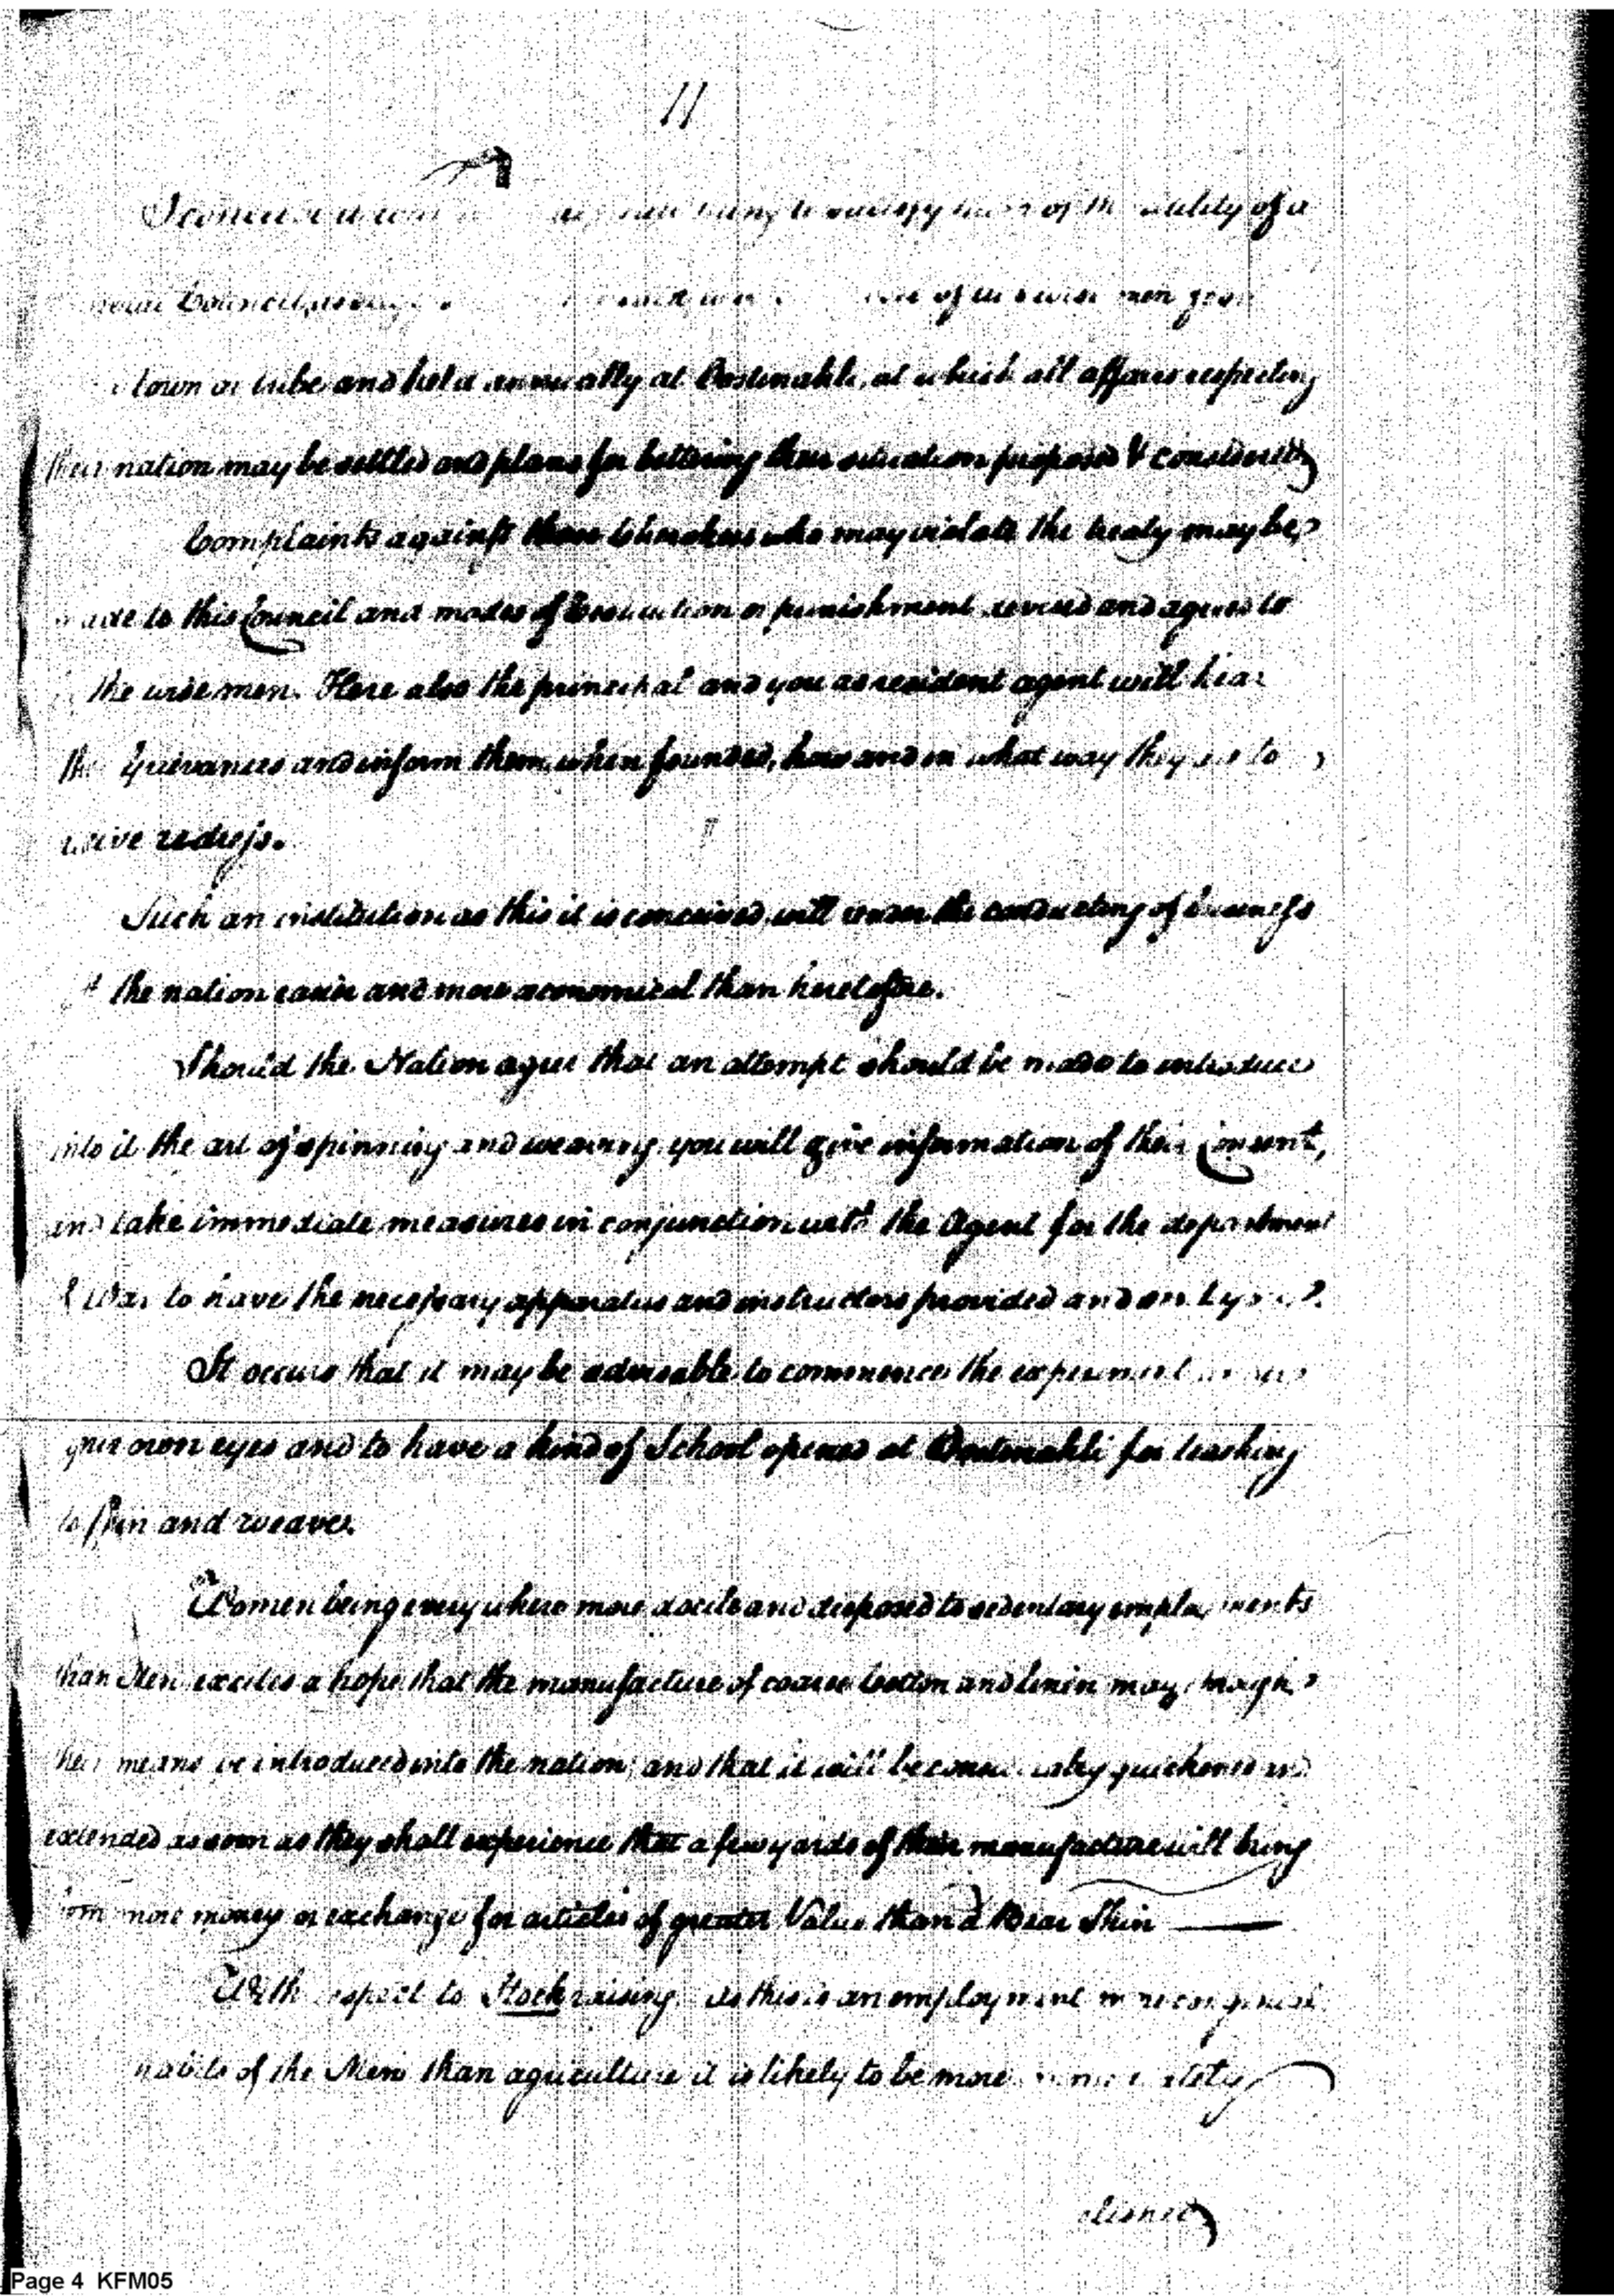 11
of the utility of a
Council, men from
town or tribe and held annually at Oostinahli, at which all affairs respecting
their nation may be settled and plans for bettering their situation proposed & considered
Complaints against those Cherokees who may violate the treaty may be
made to this Council and modes of or punishment devised and agreed to
the wise men. Here also the principal and you as resident agent will hear
the Grievances and inform them, when founded, how and in what way they are to
receive redress.
Such an institution as this it is conceived, will render the conducting of business
the nation easier and more oeconomical than heretofore.
Should the Nation agree that an attempt should be made to introduce
into it the art of spinning and weaving, you will give information of their Consent,
and take immediate measures in conjunction with the Agent for the department
of War to have the necessary apparatus and instructors provided and
It occurs that it may be adviseable to commence the experiment
your own eyes and to have a kind of School opened at Oostinahli for teaching
to spin and weave.
Women being every where more docile and disposed to sedentary employments
than Men excites a hope that the manufacture of coarse Cotton and linen may through
their means be introduced into the nation; and that it will be quickened and
extended as soon as they shall experience that a few yards of their manufacture will bring
them more money or exchange for articles of greater Value than a Bear Skin
With respect to Stock raising. As this is an employment more congenial
habits of the Men than agriculture it is likely to be more immediately